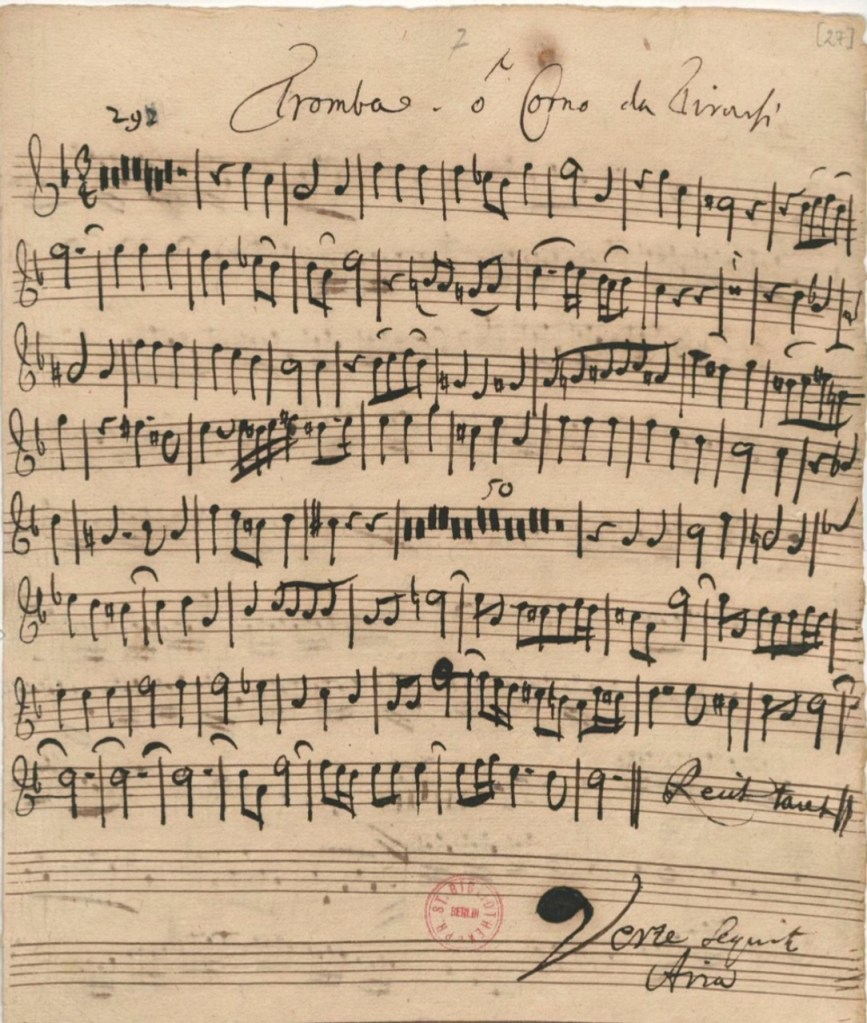 7
[27]
Tromba. ô Corno da Tirarsi
292
50
Recit tacet
PR. ST. BIBLIOTHEK BERLIN
Verte sequit
Aria